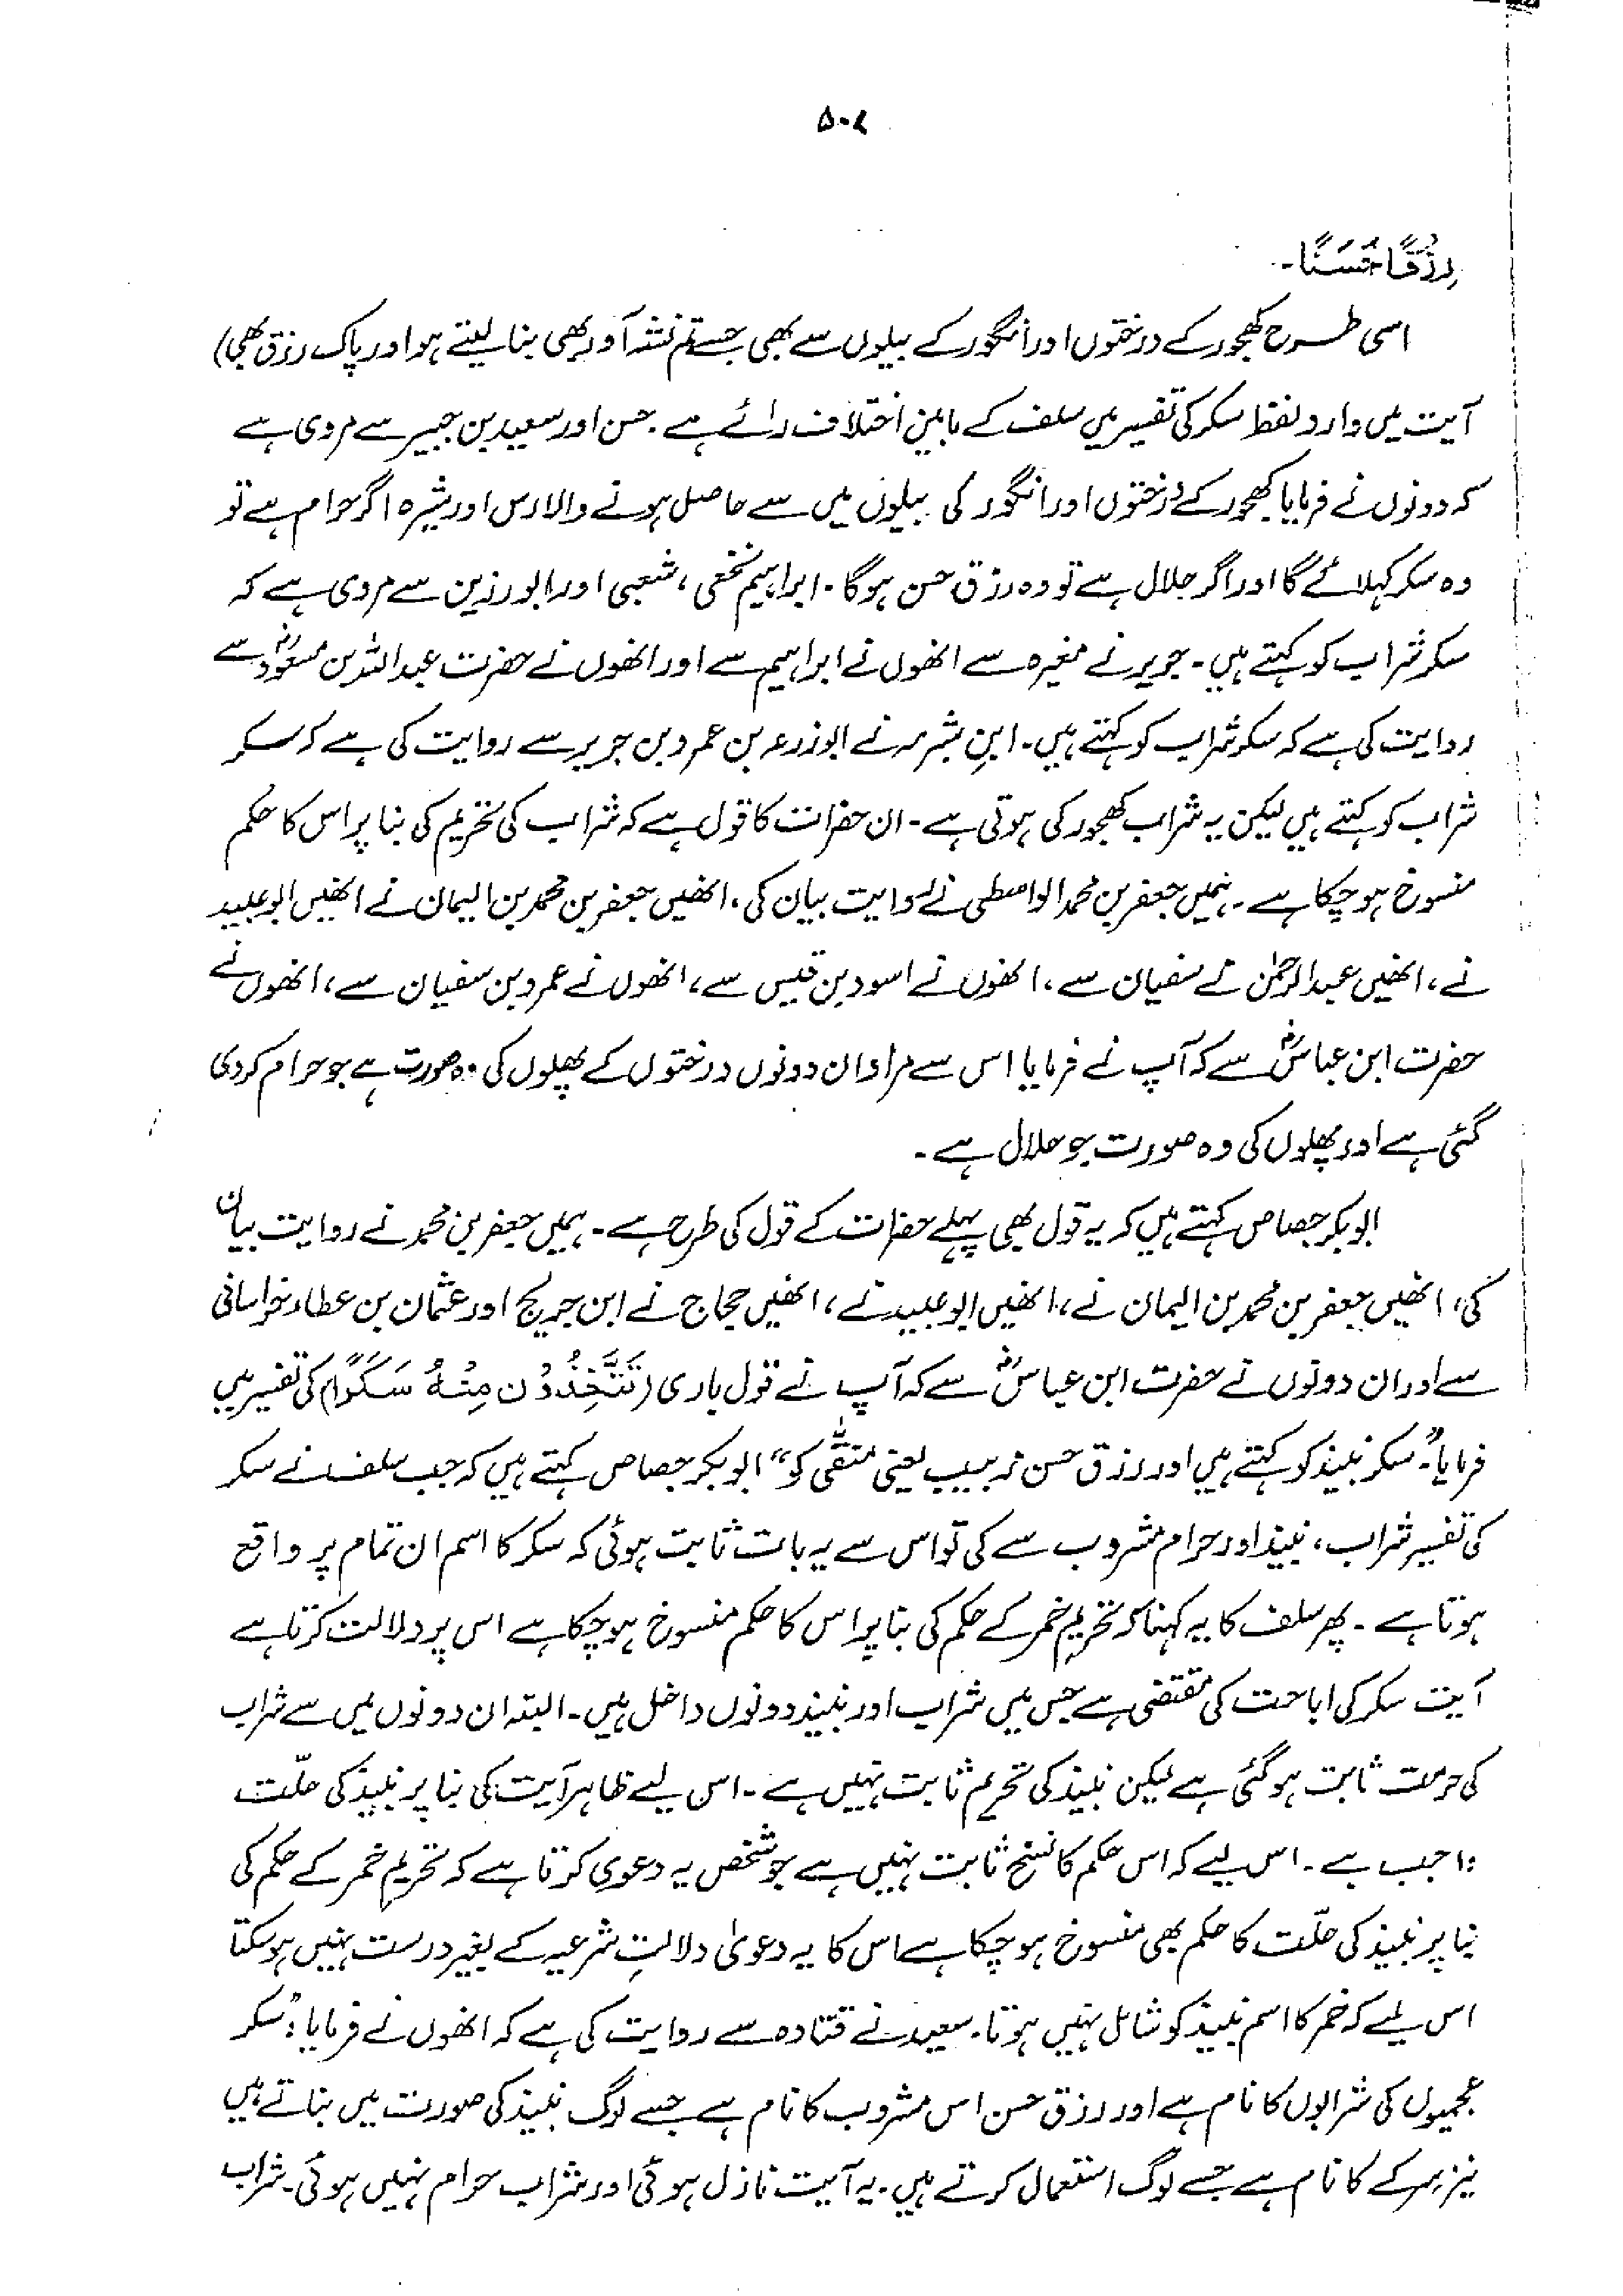 ۵۰۷
رِزْقًا حَسَنًا۔
اسی طرح کھجور کے درختوں اور انگور کے بیلوں سے بھی جسے تم نشہ آور بھی بنا لیتے ہو اور پاک رزق بھی)
آیت میں وارد لفظ سکر کی تفسیر میں سلف کے مابین اختلاف رائے ہے۔ حسن اور سعید بن جبیر سے مروی ہے
کہ دونوں نے فرمایا کھجور کے درختوں اور انگور کی بیلوں میں سے حاصل ہونے والا رس اور شیرہ اگر حرام ہے تو
وہ سکر کہلائے گا اور اگر حلال ہے تو وہ رزق حسن ہوگا۔ ابراہیم نخعی، شعبی اور ابورزین سے مروی ہے کہ
سکر شراب کو کہتے ہیں۔ جریر نے مغیرہ سے انھوں نے ابراہیم سے اور انھوں نے حضرت عبداللہ بن مسعودؓ سے
روایت کی ہے کہ سکر شراب کو کہتے ہیں۔ ابنِ شبرمہ نے ابوزرعہ بن عمرو بن جریر سے روایت کی ہے کہ سکر
شراب کو کہتے ہیں لیکن یہ شراب کھجور کی ہوتی ہے۔ ان حضرات کا قول ہے کہ شراب کی تحریم کی بنا پر اس کا حکم
منسوخ ہو چکا ہے۔ ہمیں جعفر بن محمد الواسطی نے روایت بیان کی، انھیں جعفر بن محمد بن الیمان نے انھیں ابوعبید
نے، انھیں عبدالرحمٰن نے سفیان سے، انھوں نے اسود بن قیس سے، انھوں نے عمرو بن سفیان سے، انھوں نے
حضرت ابن عباسؓ سے کہ آپ نے فرمایا اس سے مراد ان دونوں درختوں کے پھلوں کی وہ صورت ہے جو حرام کردی
گئی ہے اور پھلوں کی وہ صورت جو حلال ہے۔
ابوبکر جصاص کہتے ہیں کہ یہ قول بھی پہلے حضرات کے قول کی طرح ہے۔ ہمیں جعفر بن محمد نے روایت بیان
کی، انھیں جعفر بن محمد بن الیمان نے، انھیں ابوعبید نے، انھیں حجاج نے ابن جریج اور عثمان بن عطاء خراسانی
سے اور ان دونوں نے حضرت ابن عباسؓ سے کہ آپ نے قول باری (تَتَّخِذُوْنَ مِنْهُ سَكَرًا) کی تفسیر میں
فرمایا۔"سکر نبیذ کو کہتے ہیں اور رزق حسن زبیب یعنی منقّٰی کو" ابوبکر جصاص کہتے ہیں کہ جب سلف نے سکر
کی تفسیر شراب، نبیذ اور حرام مشروب سے کی تو اس سے یہ بات ثابت ہوئی کہ سکر کا اسم ان تمام پر واقع
ہوتا ہے۔ پھر سلف کا یہ کہنا کہ تحریمِ خمر کے حکم کی بنا پر اس کا حکم منسوخ ہو چکا ہے اس پر دلالت کرتا ہے
آیت سکر کی اباحت کی مقتضی ہے جس میں شراب اور نبیذ دونوں داخل ہیں۔ البتہ ان دونوں میں سے شراب
کی حرمت ثابت ہوگئی ہے لیکن نبیذ کی تحریم ثابت نہیں ہے۔ اس لیے ظاہر آیت کی بنا پر نبیذ کی حلّت
واجب ہے۔ اس لیے کہ اس حکم کا نسخ ثابت نہیں ہے جو شخص یہ دعوی کرتا ہے کہ تحریمِ خمر کے حکم کی
بنا پر نبیذ کی حلّت کا حکم بھی منسوخ ہو چکا ہے اس کا یہ دعویٰ دلالتِ شرعیہ کے بغیر درست نہیں ہوسکتا
اس لیے کہ خمر کا اسم نبیذ کو شامل نہیں ہوتا۔ سعید نے قتادہ سے روایت کی ہے کہ انھوں نے فرمایا: "سکر
عجمیوں کی شرابوں کا نام ہے اور رزق حسن اس مشروب کا نام ہے جسے لوگ نبیذ کی صورت میں بناتے ہیں
نیز سرکے کا نام ہے جسے لوگ استعمال کرتے ہیں۔ یہ آیت نازل ہوئی اور شراب حرام نہیں ہوئی۔ شراب